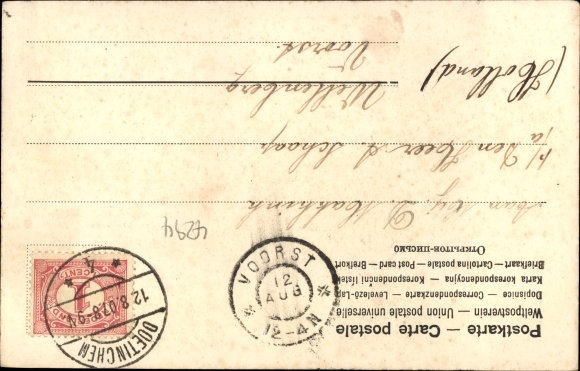 Postkarte — Carte postale
Weltpostverein — Union postale universelle
Dopisnice — Correspondenzkarte — Levelező-Lap
Karta korespondencyjna — Korespondenční lístek
Briefkaart — Cartolina postale — Post card — Brefkort
ОТКРЫТОЕ ПИСЬМО
VOORST
12
AUG
12-4N
DOETINCHEM
12.8.07.8-9
4
1
CENT
4294
Aan
Den Heer A. Schaap
Wellenberg
Voorst.
(Holland)